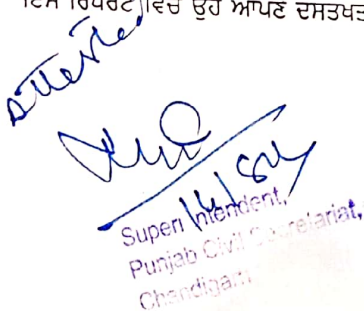 ਇਸ ਰਿਪੋਰਟ ਵਿਚ ਉਹ ਆਪਣੇ ਦਸਤਖਤ
Attested
Superintendent,
Punjab Civil Secretariat,
Chandigarh